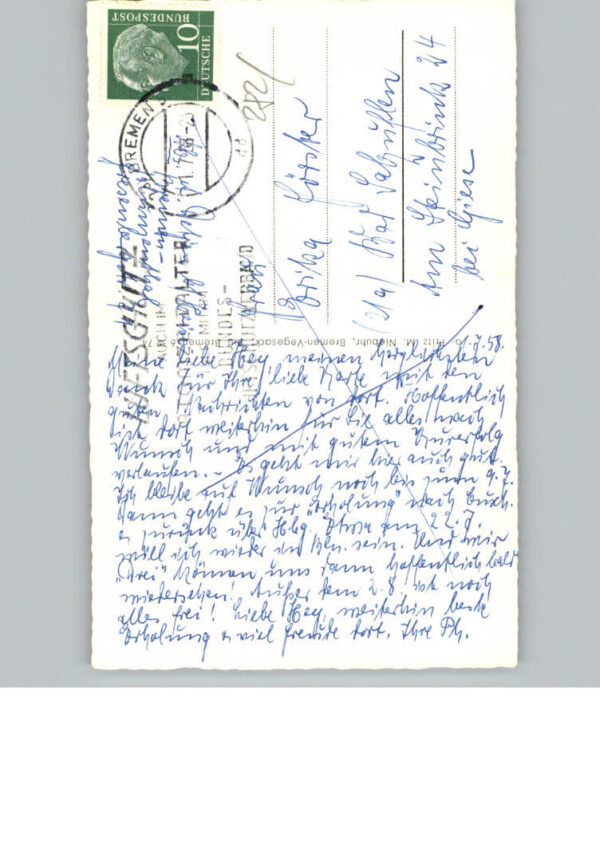 DEUTSCHE
BUNDESPOST
10
BREMEN
LUFTSCHUTZ
AUCH IM
ZEITALTER
BUNDES-
LUFTSCHUTZVERBAND
Erika Förster
Bad Salzuflen
Am Steinbrink 24
bei Giese
Fritz (M. Niebuhr, Bremen-Vegesack,
7.58.
liebe Hey, meinen herzlichsten
Dank für Ihre liebe Karte mit den
guten Nachrichten von dort. Hoffentlich
ist dort weiterhin für Sie alles nach
Wunsch und mit gutem Kurerfolg
verlaufen. – Es geht mir hier auch gut.
Ich bleibe auf Wunsch noch bis zum 9.7.
dann geht es zur "Erholung" nach
zurück über Hbg. Etwa am 22.7.
will ich wieder in Bln. sein. Und wir
"drei" können uns dann hoffentlich bald
wiedersehen! Außer dem 2.8. ist noch
alles frei! Liebe Hey, weiterhin beste
Erholung u. viel Freude dort. Ihre Ph.